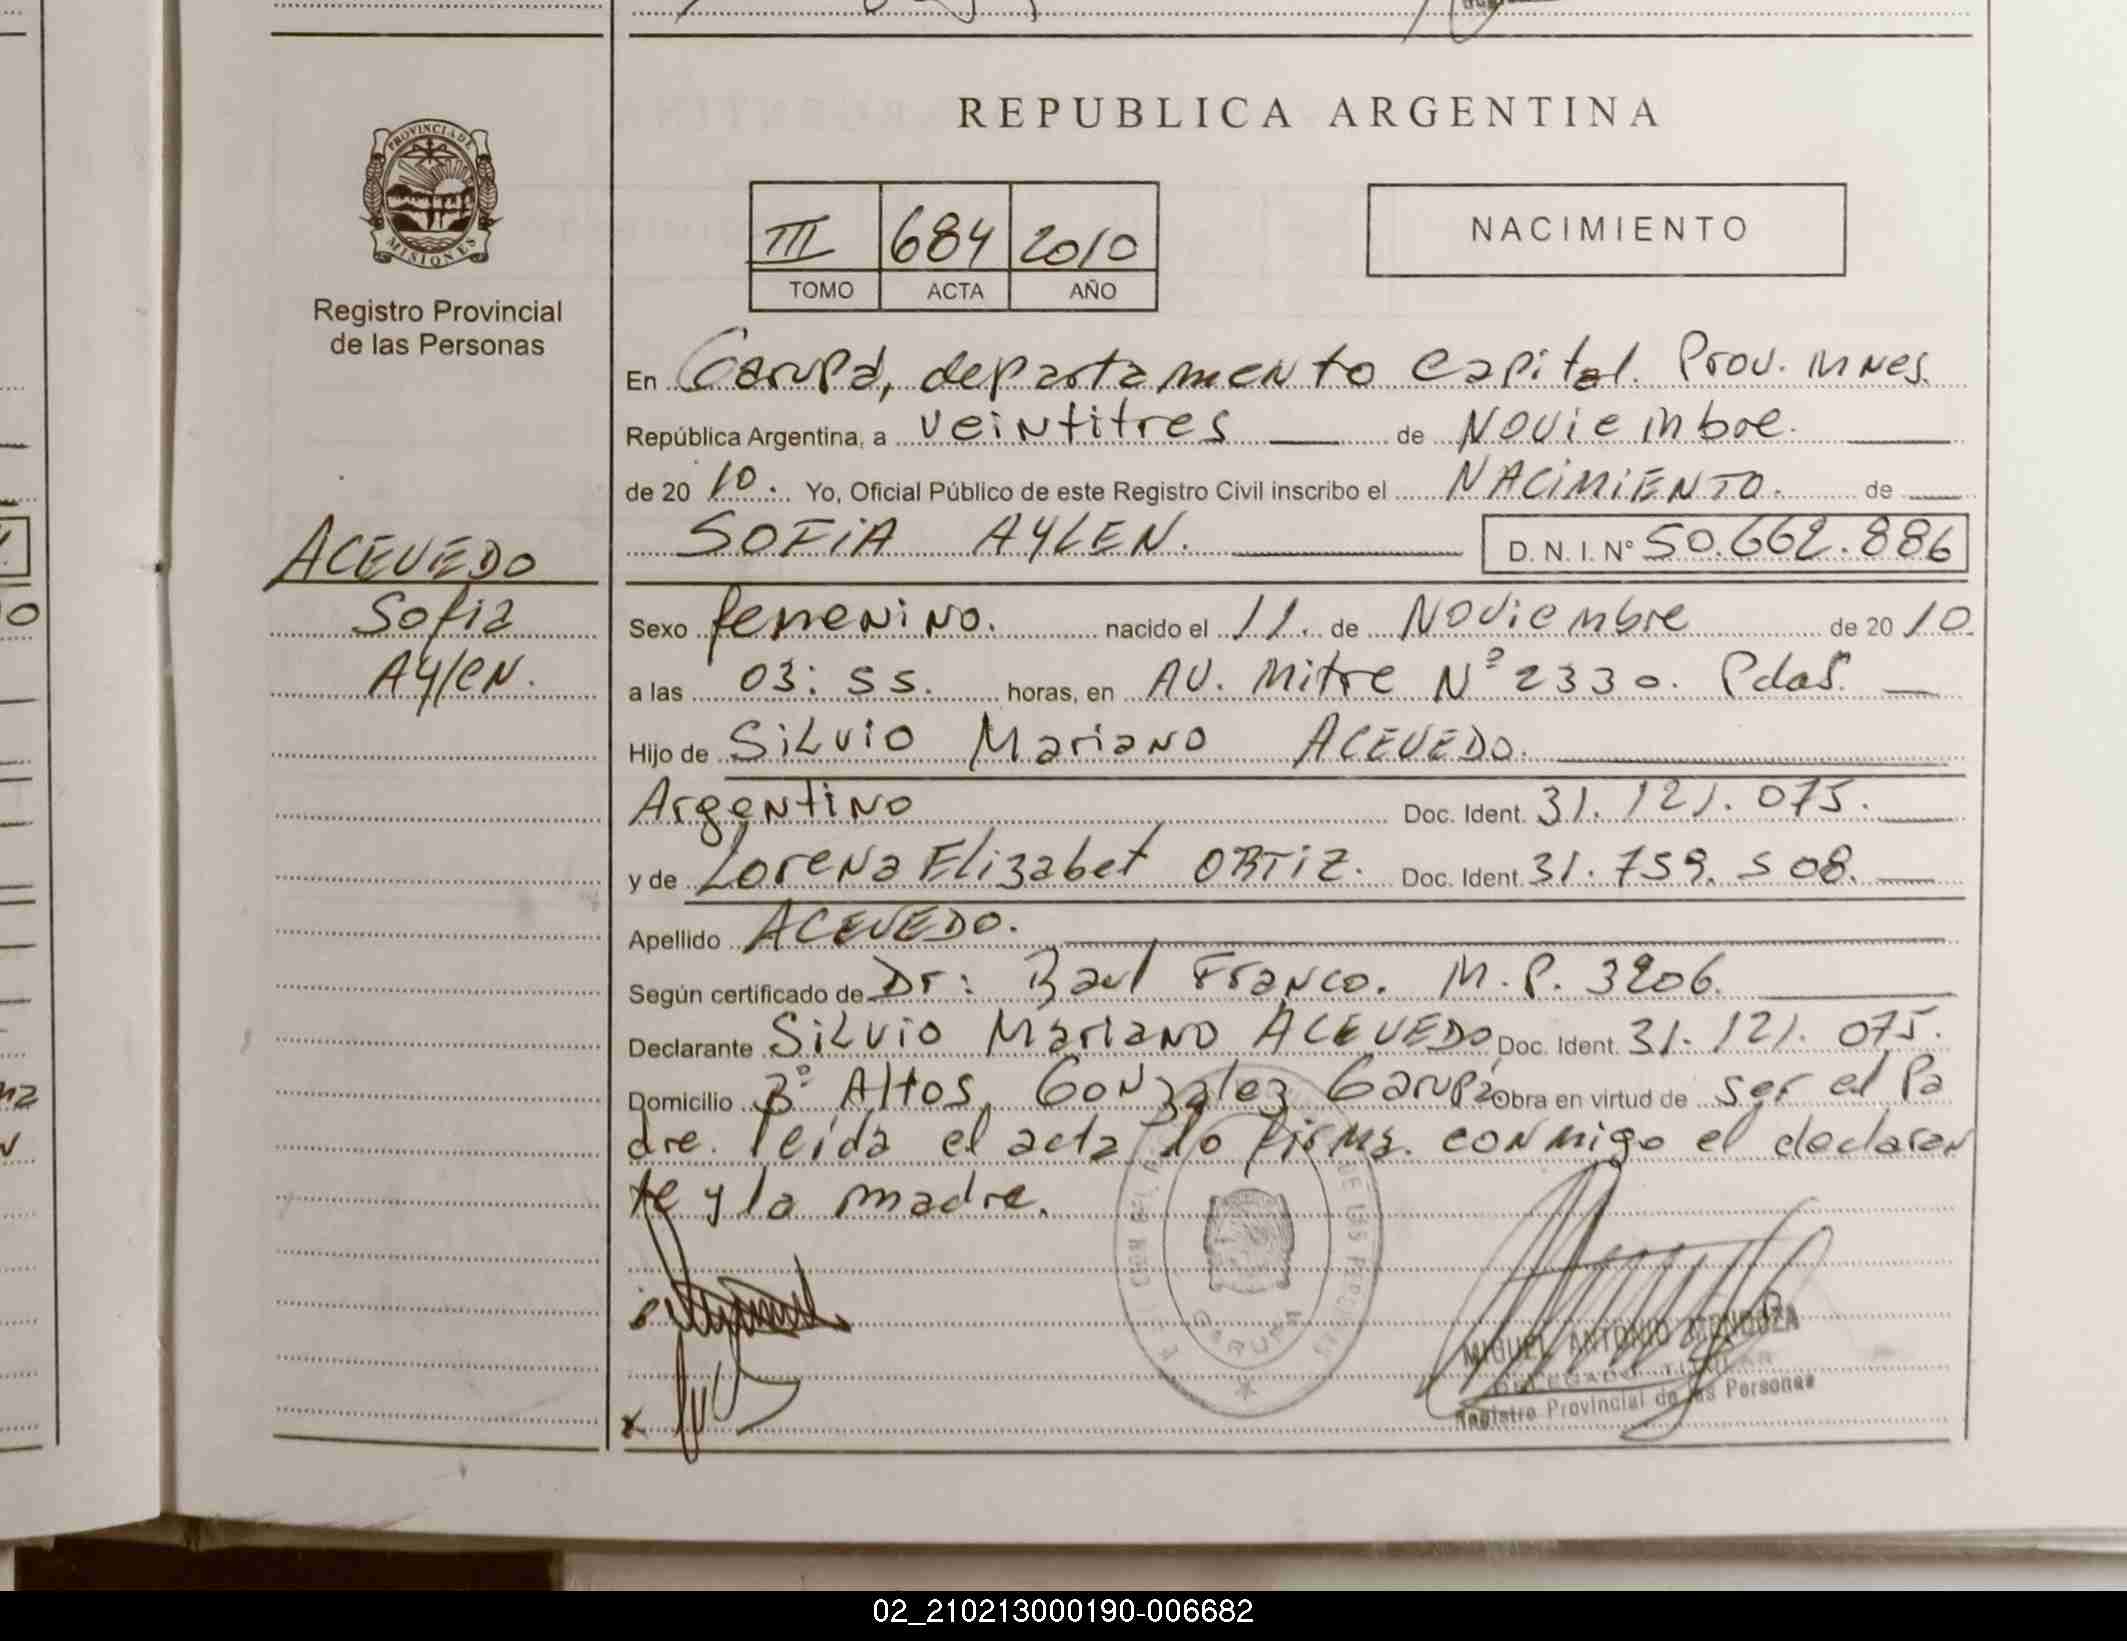 REPUBLICA ARGENTINA
PROVINCIA DE
MISIONES
Registro Provincial
de las Personas
III 684 2010
TOMO ACTA AÑO
NACIMIENTO
En Garupá, departamento Capital. Prov. Mnes.
República Argentina, a veintitres de Noviembre.
de 20 10. Yo, Oficial Público de este Registro Civil inscribo el NACIMIENTO. de
SOFIA AYLEN. D. N. I. Nº 50.662.886
ACEVEDO
Sofia
Aylen.
Sexo femenino. nacido el 11. de Noviembre de 20 10.
a las 03:55. horas, en AV. Mitre Nº 2330. Pdas.
Hijo de Silvio Mariano ACEVEDO.
Argentino Doc. Ident. 31.121.075.
y de Lorena Elizabet ORTIZ. Doc. Ident. 31.759.508.
Apellido ACEVEDO.
Según certificado de Dr: Raul Franco. M.P. 3206.
Declarante Silvio Mariano ACEVEDO Doc. Ident. 31.121.075.
Domicilio Bº Altos, Gonzalez Garupá Obra en virtud de ser el Pa
dre. leída el acta lo firma. conmigo el declaran
te y la madre.
MIGUEL ANTONIO MENDOZA
DELEGADO TITULAR
Registro Provincial de las Personas
02_210213000190-006682